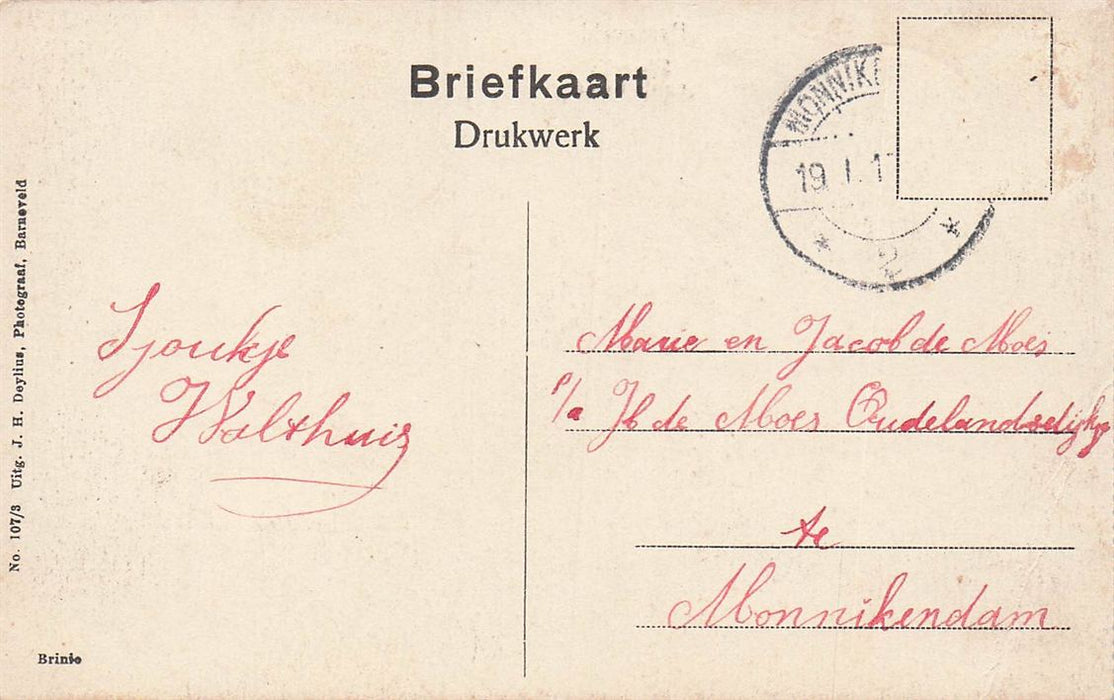 Briefkaart
Drukwerk
MONNIK
19. 1. 1
2
Sjoukje
Walthuis
Marie en Jacob de Moes
p/a Jb de Moes Oudelandsedijkje
te
Monnikendam
No. 107/3 Uitg. J. H. Deylius, Photograaf, Barneveld
Brinio